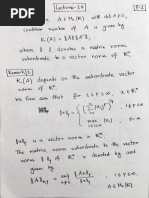 Lecture-17
P-1
A ∈ M_n(ℝ) with det A ≠ 0,
condition number of A is given by
K(A) = ‖A‖ ‖A⁻¹‖,
where ‖·‖ denotes a matrix norm
subordinate to a vector norm of ℝⁿ.
K(A) depends on the subordinate vector
norm of ℝⁿ.
We know that for 1 ≤ p ≤ ∞,
‖x‖_p = { (Σ |x_i|^p)^{1/p}, 1 ≤ p < ∞,
max |x_i|, p = ∞
1 ≤ i ≤ n
is a vector norm in ℝⁿ.
The matrix norm subordinate to the vector
norm of ℝⁿ is denoted by and given
by
‖A‖_p = sup ‖Ax‖_p / ‖x‖_p, 1 ≤ p ≤ ∞,
A ∈ M_n(ℝ)